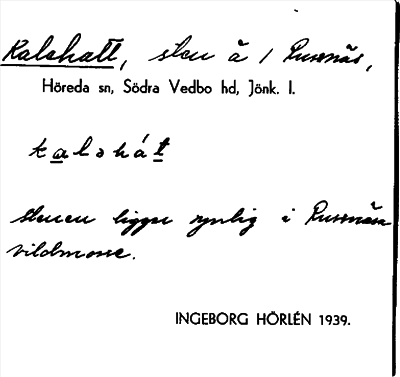 Kalshatt, sten å / Russnäs,
Höreda sn, Södra Vedbo hd, Jönk. l.
kalshát
stenen ligger synlig i Russnäsa
vildmosse.
INGEBORG HÖRLÉN 1939.